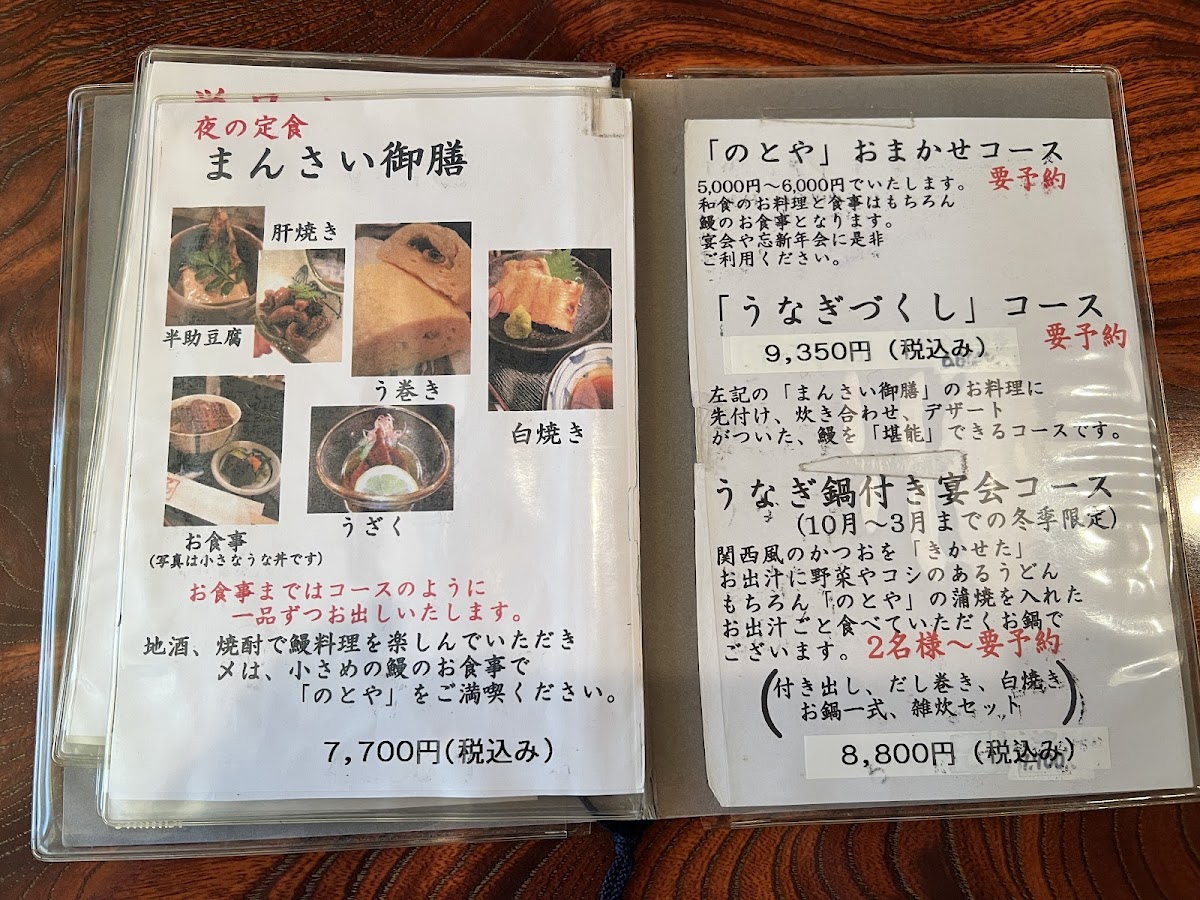 夜の定食
まんさい御膳
肝焼き
半助豆腐
う巻き
白焼き
うざく
お食事
(写真は小さなうな丼です)
お食事まではコースのように
一品ずつお出しいたします。
地酒、焼酎で鰻料理を楽しんでいただき
〆は、小さめの鰻のお食事で
「のとや」をご満喫ください。
7,700円(税込み)
「のとや」おまかせコース
5,000円～6,000円でいたします。 要予約
和食のお料理と食事はもちろん
鰻のお食事となります。
宴会や忘新年会に是非
ご利用ください。
「うなぎづくし」コース
要予約
9,350円(税込み)
左記の「まんさい御膳」のお料理に
先付け、炊き合わせ、デザート
がついた、鰻を「堪能」できるコースです。
うなぎ鍋付き宴会コース
(10月～3月までの冬季限定)
関西風のかつおを「きかせた」
お出汁に野菜やコシのあるうどん
もちろん「のとや」の蒲焼を入れた
お出汁ごと食べていただくお鍋で
ございます。2名様～要予約
(付き出し、だし巻き、白焼き
お鍋一式、雑炊セット)
8,800円(税込み)